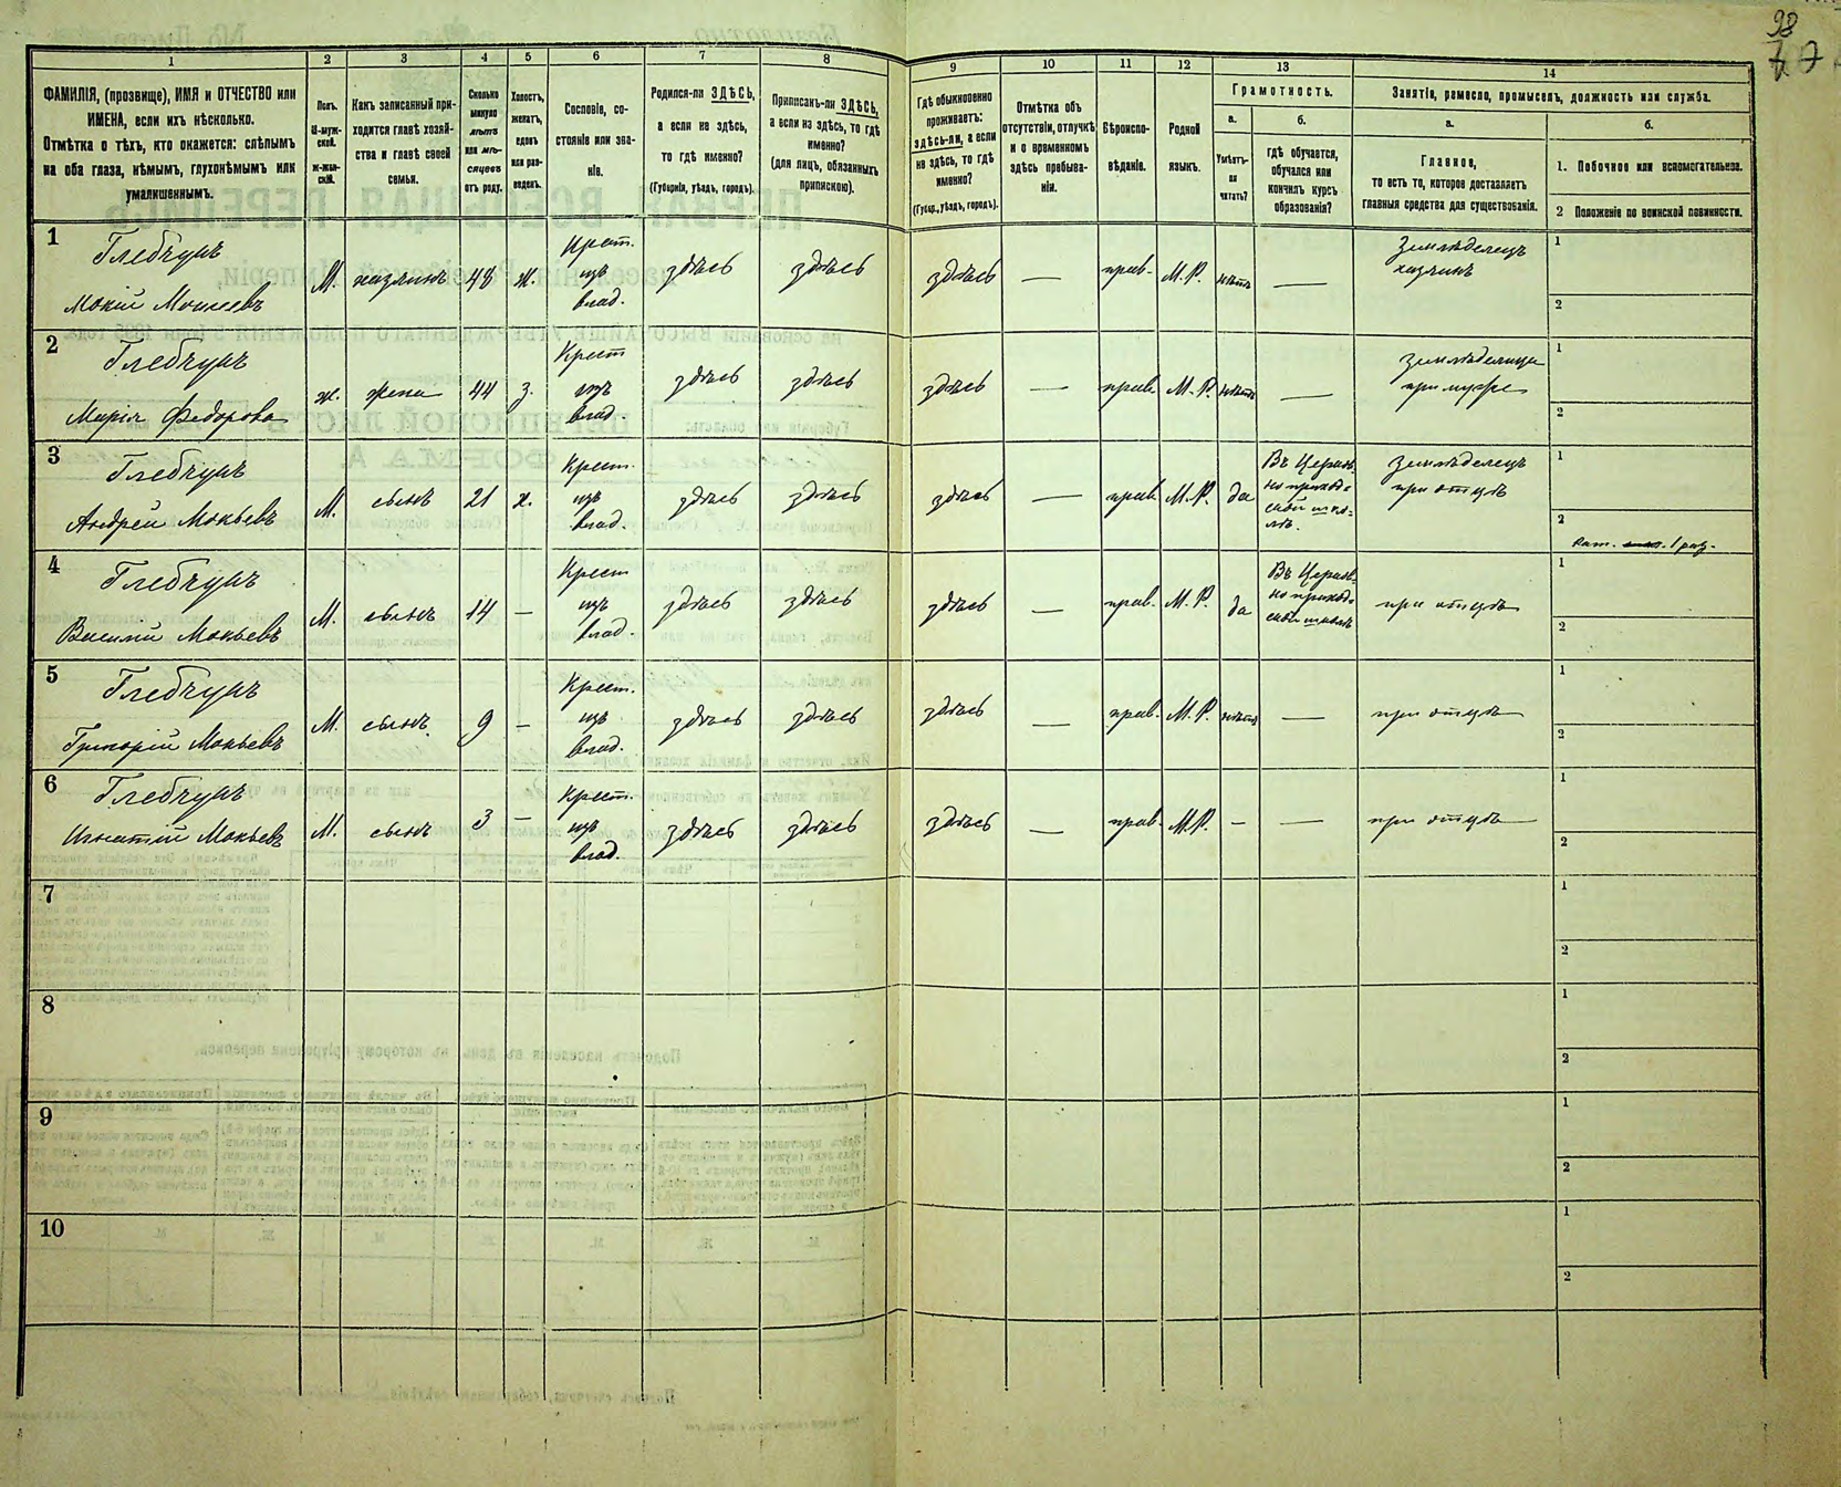 98
70
1
2
3
4
5
6
7
8
9
10
11
12
13
14
ФАМИЛІЯ, (прозвище), ИМЯ и ОТЧЕСТВО или
ИМЕНА, если ихъ нѣсколько.
Отмѣтка о тѣхъ, кто окажется: слѣпымъ
на оба глаза, нѣмымъ, глухонѣмымъ или
умалишеннымъ.
Полъ.
М-муж-
ской.
Ж-жен-
скій.
Какъ записанный при-
ходится главѣ хозяй-
ства и главѣ своей
семьи.
Сколько
минуло
лѣтъ
или мѣ-
сяцевъ
отъ роду.
Холостъ,
женатъ,
вдовъ
или раз-
веденъ.
Сословіе, со-
стояніе или зва-
ніе.
Родился-ли ЗДѢСЬ,
а если не здѣсь,
то гдѣ именно?
(Губернія, уѣздъ, городъ).
Приписанъ-ли ЗДѢСЬ,
а если не здѣсь, то гдѣ
именно?
(для лицъ, обязанныхъ
припискою).
Гдѣ обыкновенно
проживаетъ:
здѣсь-ли, а если
не здѣсь, то гдѣ
именно?
(Губер., уѣздъ, городъ).
Отмѣтка объ
отсутствіи, отлучкѣ
и о временномъ
здѣсь пребыва-
ніи.
Вѣроиспо-
вѣданіе.
Родной
языкъ.
Грамотность.
а.
Умѣетъ-
ли
читать?
б.
гдѣ обучается,
обучался или
кончилъ курсъ
образованія?
Занятія, ремесло, промыселъ, должность или служба.
а.
Главное,
то есть то, которое доставляетъ
главныя средства для существованія.
б.
1. Побочное или вспомогательное.
2 Положеніе по воинской повинности.
1
Глебчукъ
Мокій Моисеевъ
М.
хазяинъ
48
ж.
Крест.
изъ
влад.
здѣсь
здѣсь
здѣсь
—
прав.
М.Р.
нѣтъ
—
Земледѣлецъ
хазяинъ
1
2
2
Глебчукъ
Марія Федорова
ж.
жена
44
з.
Крест
изъ
влад.
здѣсь
здѣсь
здѣсь
—
прав.
М.Р.
нѣтъ
—
Земледѣлица
при мужѣ
1
2
3
Глебчукъ
Андрей Мокѣевъ
М.
сынъ
21
х.
Крест.
изъ
влад.
здѣсь
здѣсь
здѣсь
—
прав.
М.Р.
да
Въ Церков-
но приход-
ской шко-
лѣ.
Земледѣлецъ
при отцѣ
1
2
1 раз.
4
Глебчукъ
Василій Мокѣевъ
М.
сынъ
14
—
Крест
изъ
влад.
здѣсь
здѣсь
здѣсь
—
прав.
М.Р.
да
Въ Церков-
но приход-
ской школѣ
при отцѣ
1
2
5
Глебчукъ
Григорій Мокѣевъ
М.
сынъ
9
—
Крест.
изъ
влад.
здѣсь
здѣсь
здѣсь
—
прав.
М.Р.
нѣтъ
—
при отцѣ
1
2
6
Глебчукъ
Игнатій Мокѣевъ
М.
сынъ
3
—
Крест.
изъ
влад.
здѣсь
здѣсь
здѣсь
—
прав.
М.Р.
—
—
при отцѣ
1
2
7
1
2
8
1
2
9
1
2
10
1
2